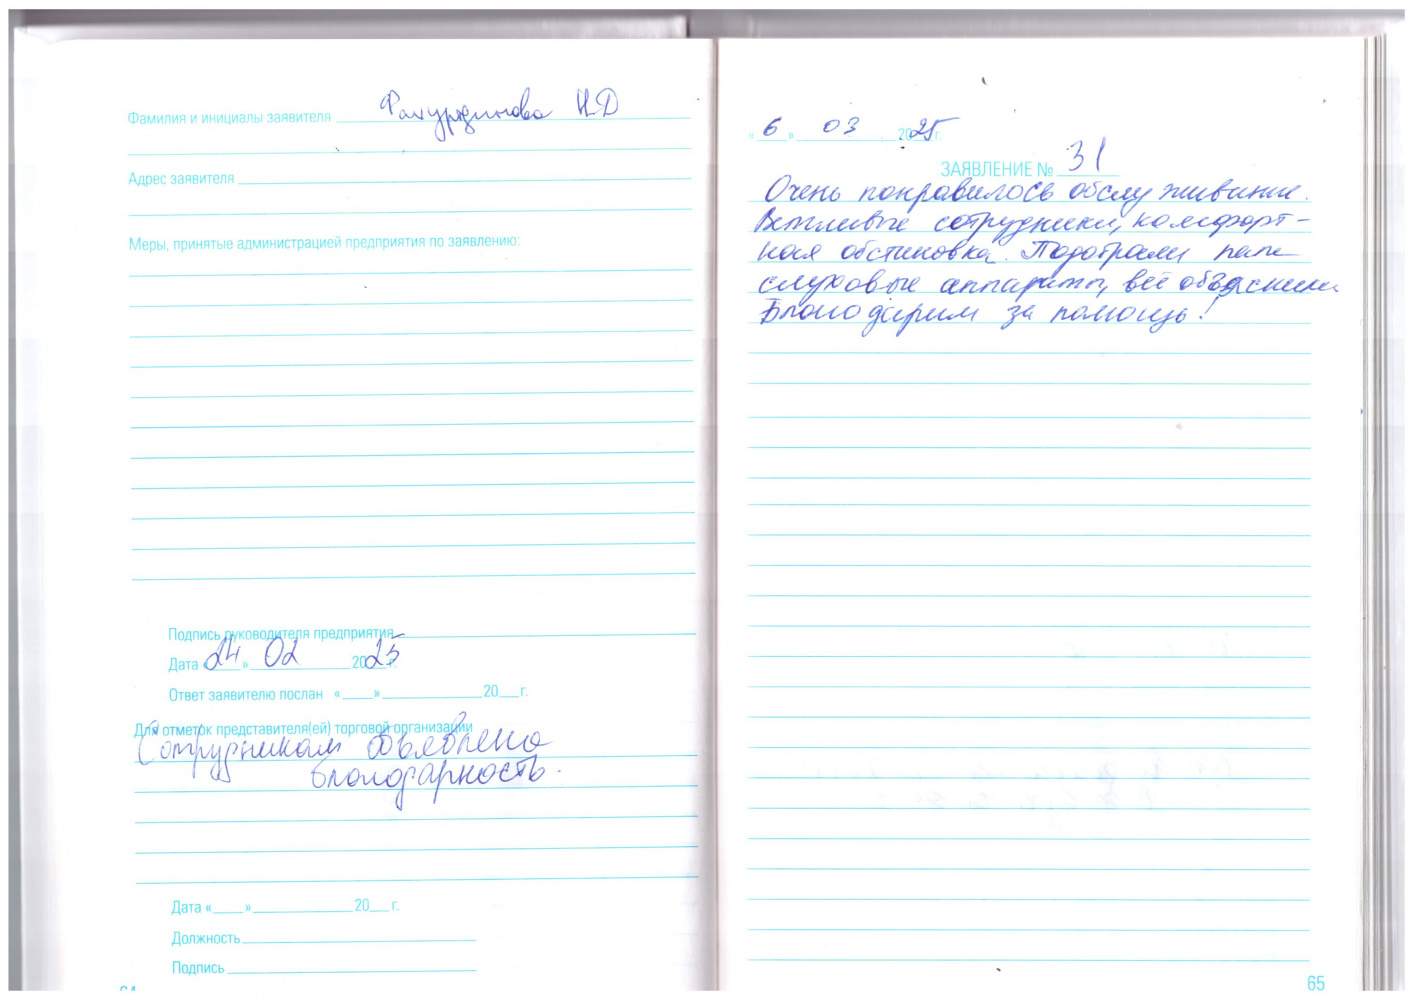 Фамилия и инициалы заявителя Фахурдинова Н.Д
Адрес заявителя
Меры, принятые администрацией предприятия по заявлению:
Подпись руководителя предприятия
Дата «24» 02 2025 г.
Ответ заявителю послан «____» ____ 20__ г.
Для отметок представителя(ей) торговой организации
Сотрудникам объявлена
благодарность.
Дата «____» ____ 20__ г.
Должность
Подпись
64
«6» 03 2025 г.
ЗАЯВЛЕНИЕ № 31
Очень понравилось обслуживание.
Вежливые сотрудники, комфорт-
ная обстановка. Подобрали папе
слуховые аппараты, всё объяснили
Благодарим за помощь!
65